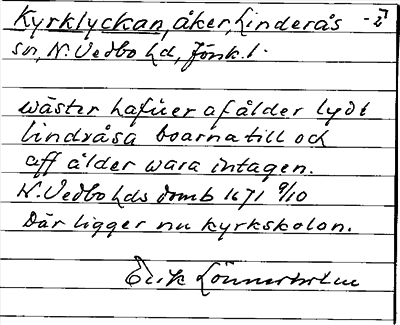 Kyrklyckan, åker, Linderås
sn, N. Vedbo hd, Jönk. l.
wäster hafuer af ålder lydt
lindråsa boarna till och
aff ålder wara intagen.
N. Vedbo hds domb 1671 9/10
Där ligger nu kyrkskolan.
Erik Lönnerholm